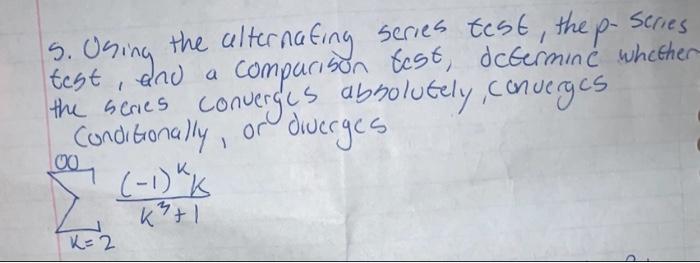 5. Using the alternating series test, the p- series
test, and a comparison test, determine whether
the series converges absolutely, converges
Conditionally, or diverges
∞
Σ (-1)^k k / k^3+1
K=2